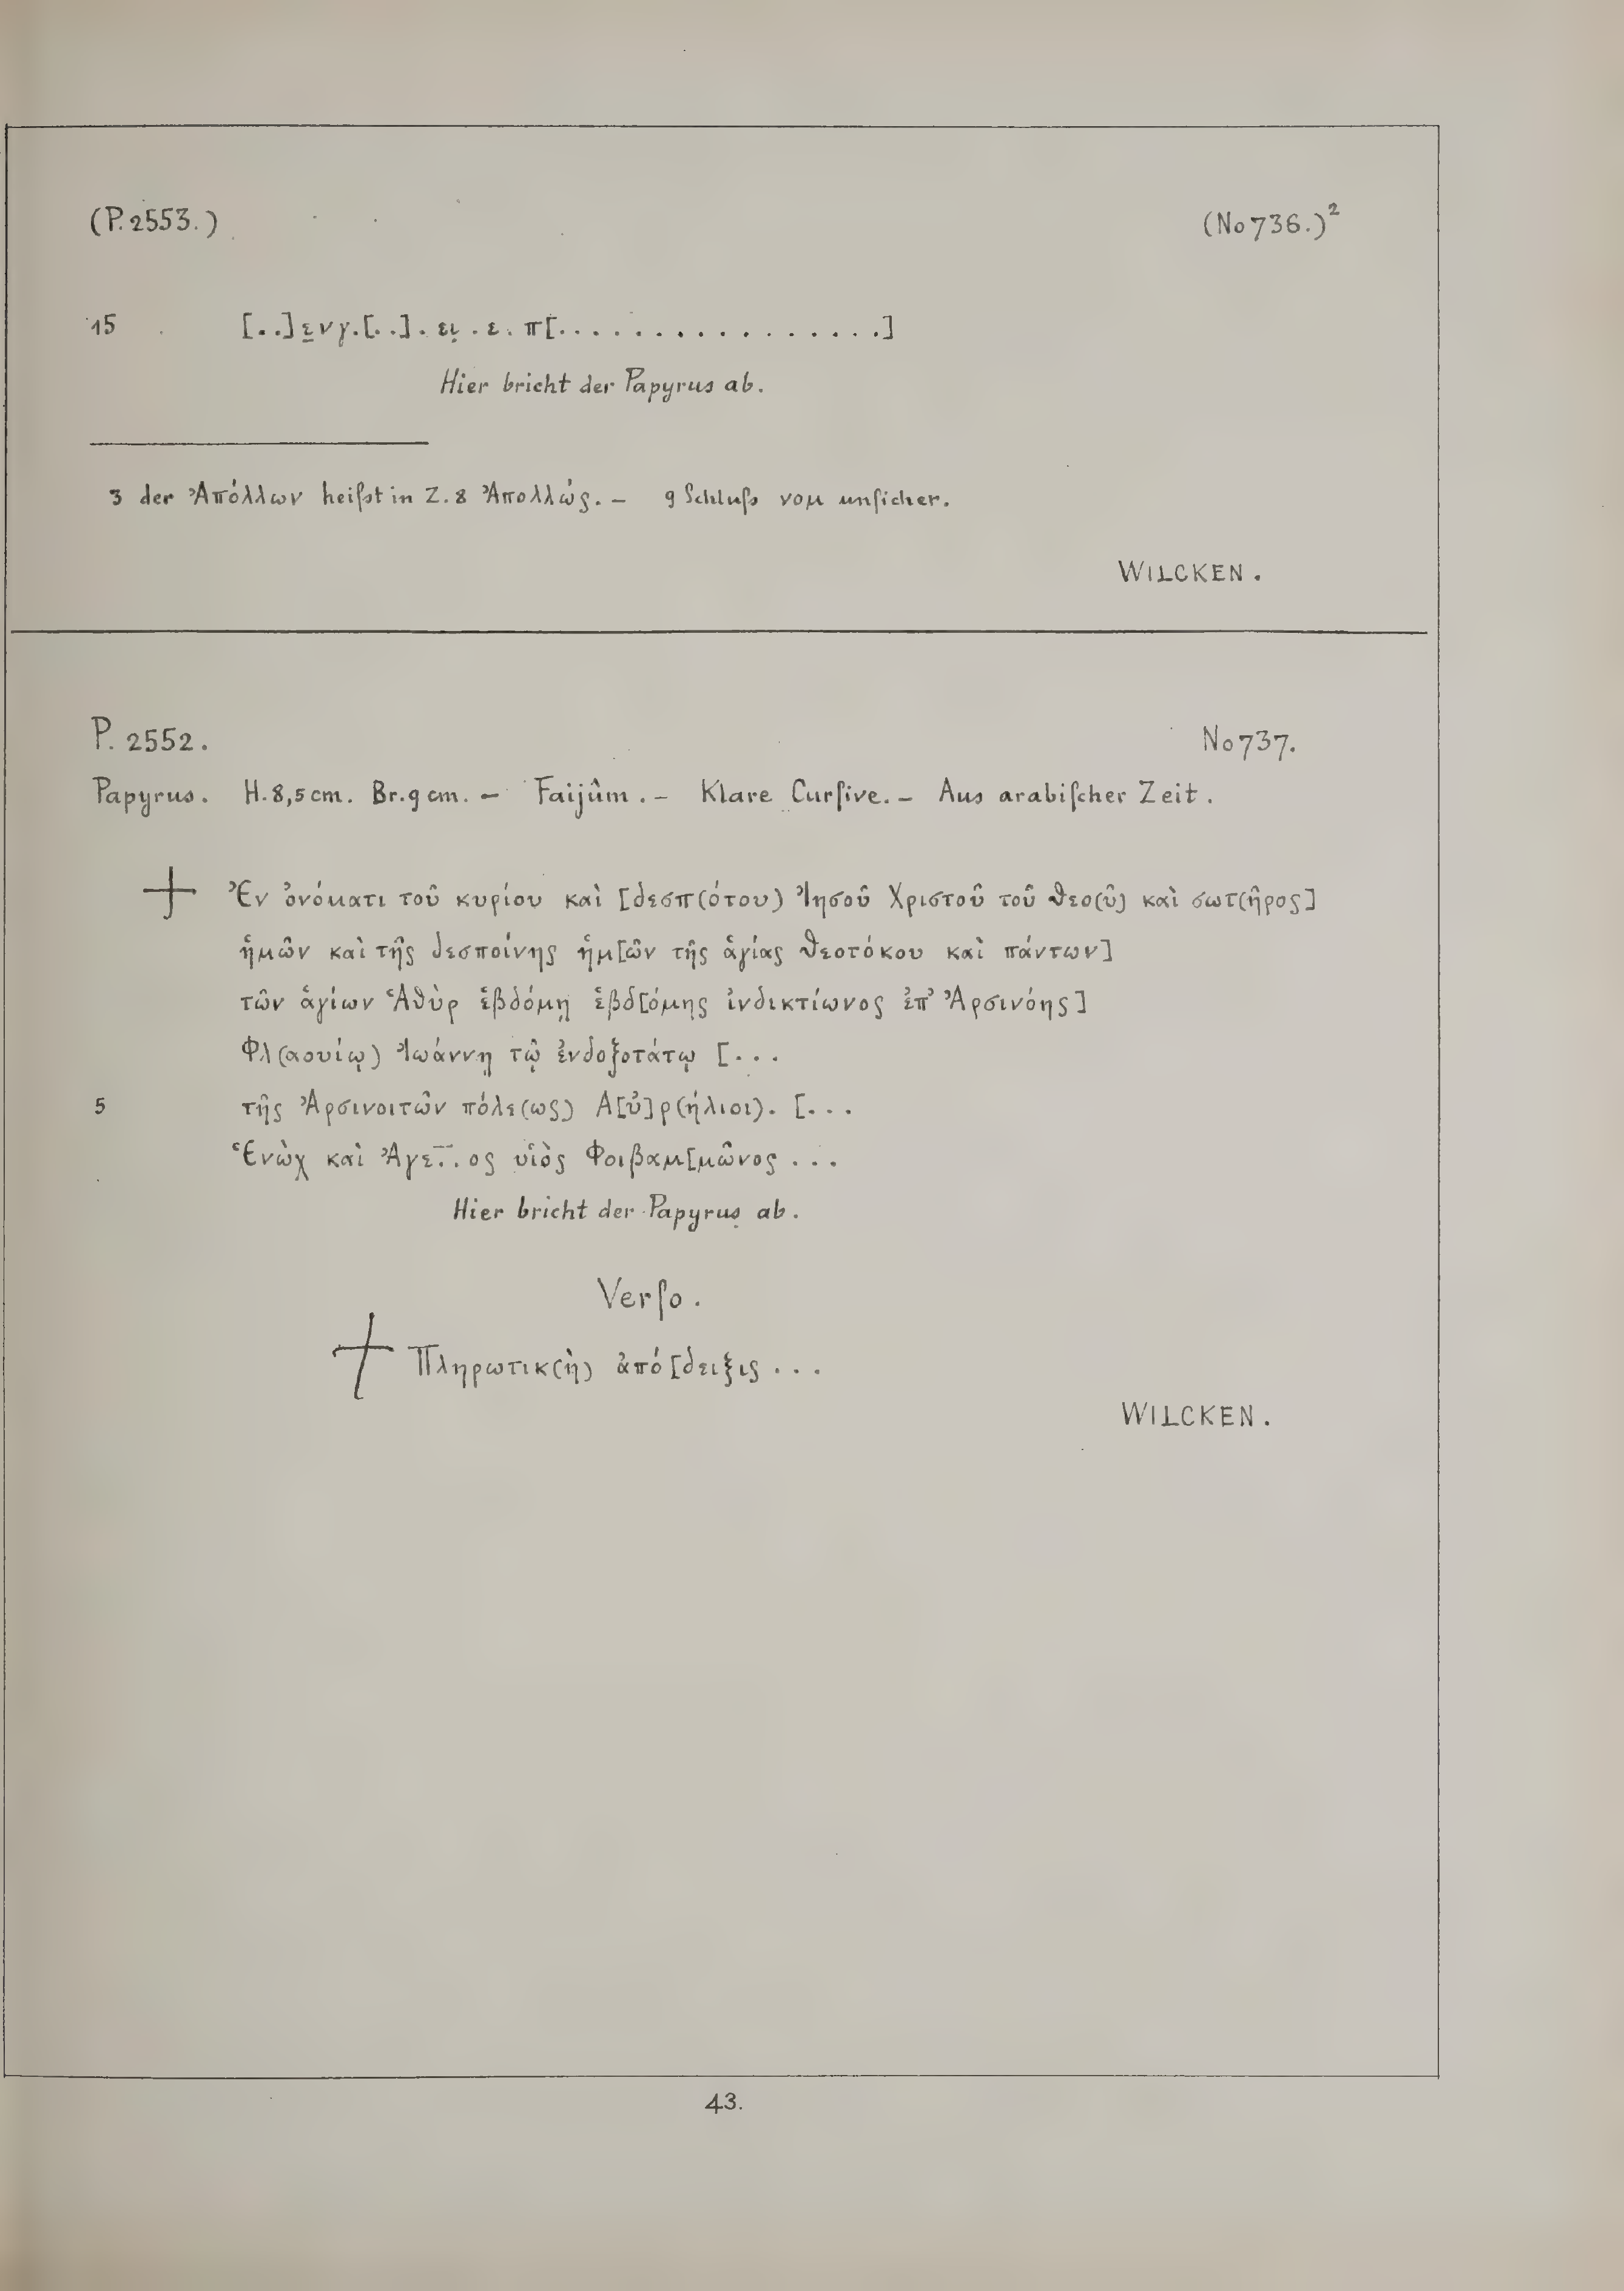 (P. 2553.) (No 736.)²
15 [..]ε̣νγ.[..]. ει̣ .ε. π[................]
Hier bricht der Papyrus ab.
3 der Ἀπόλλων heiſst in Z. 8 Ἀπολλώς. – 9 Schluſs vom unſicher.
WILCKEN.
P. 2552. No 737.
Papyrus. H. 8,5 cm. Br. 9 cm. – Faijûm. – Klare Curſive. – Aus arabiſcher Zeit.
┼ Ἐν ὀνόματι τοῦ κυρίου καὶ [δεσπ(ότου) Ἰησοῦ Χριστοῦ τοῦ θεο(ῦ) καὶ σωτ(ῆρος]
ἡμῶν καὶ τῆς δεσποίνης ἡμ[ῶν τῆς ἁγίας θεοτόκου καὶ πάντων]
τῶν ἁγίων Ἁθὺρ ἑβδόμῃ ἑβδ[όμης ἰνδικτίωνος ἐπ' Ἀρσινόης]
Φλ(αουίῳ) Ἰωάννῃ τῷ ἐνδοξοτάτῳ [...
5 τῆς Ἀρσινοιτῶν πόλε(ως) Α[ὐ]ρ(ήλιοι). [...
Ἑνὼχ καὶ Ἀγε..ος υἱὸς Φοιβαμ[μῶνος ...
Hier bricht der Papyrus ab.
Verſo.
┼ Πληρωτικ(ὴ) ἀπό[δειξις ...
WILCKEN.
43.